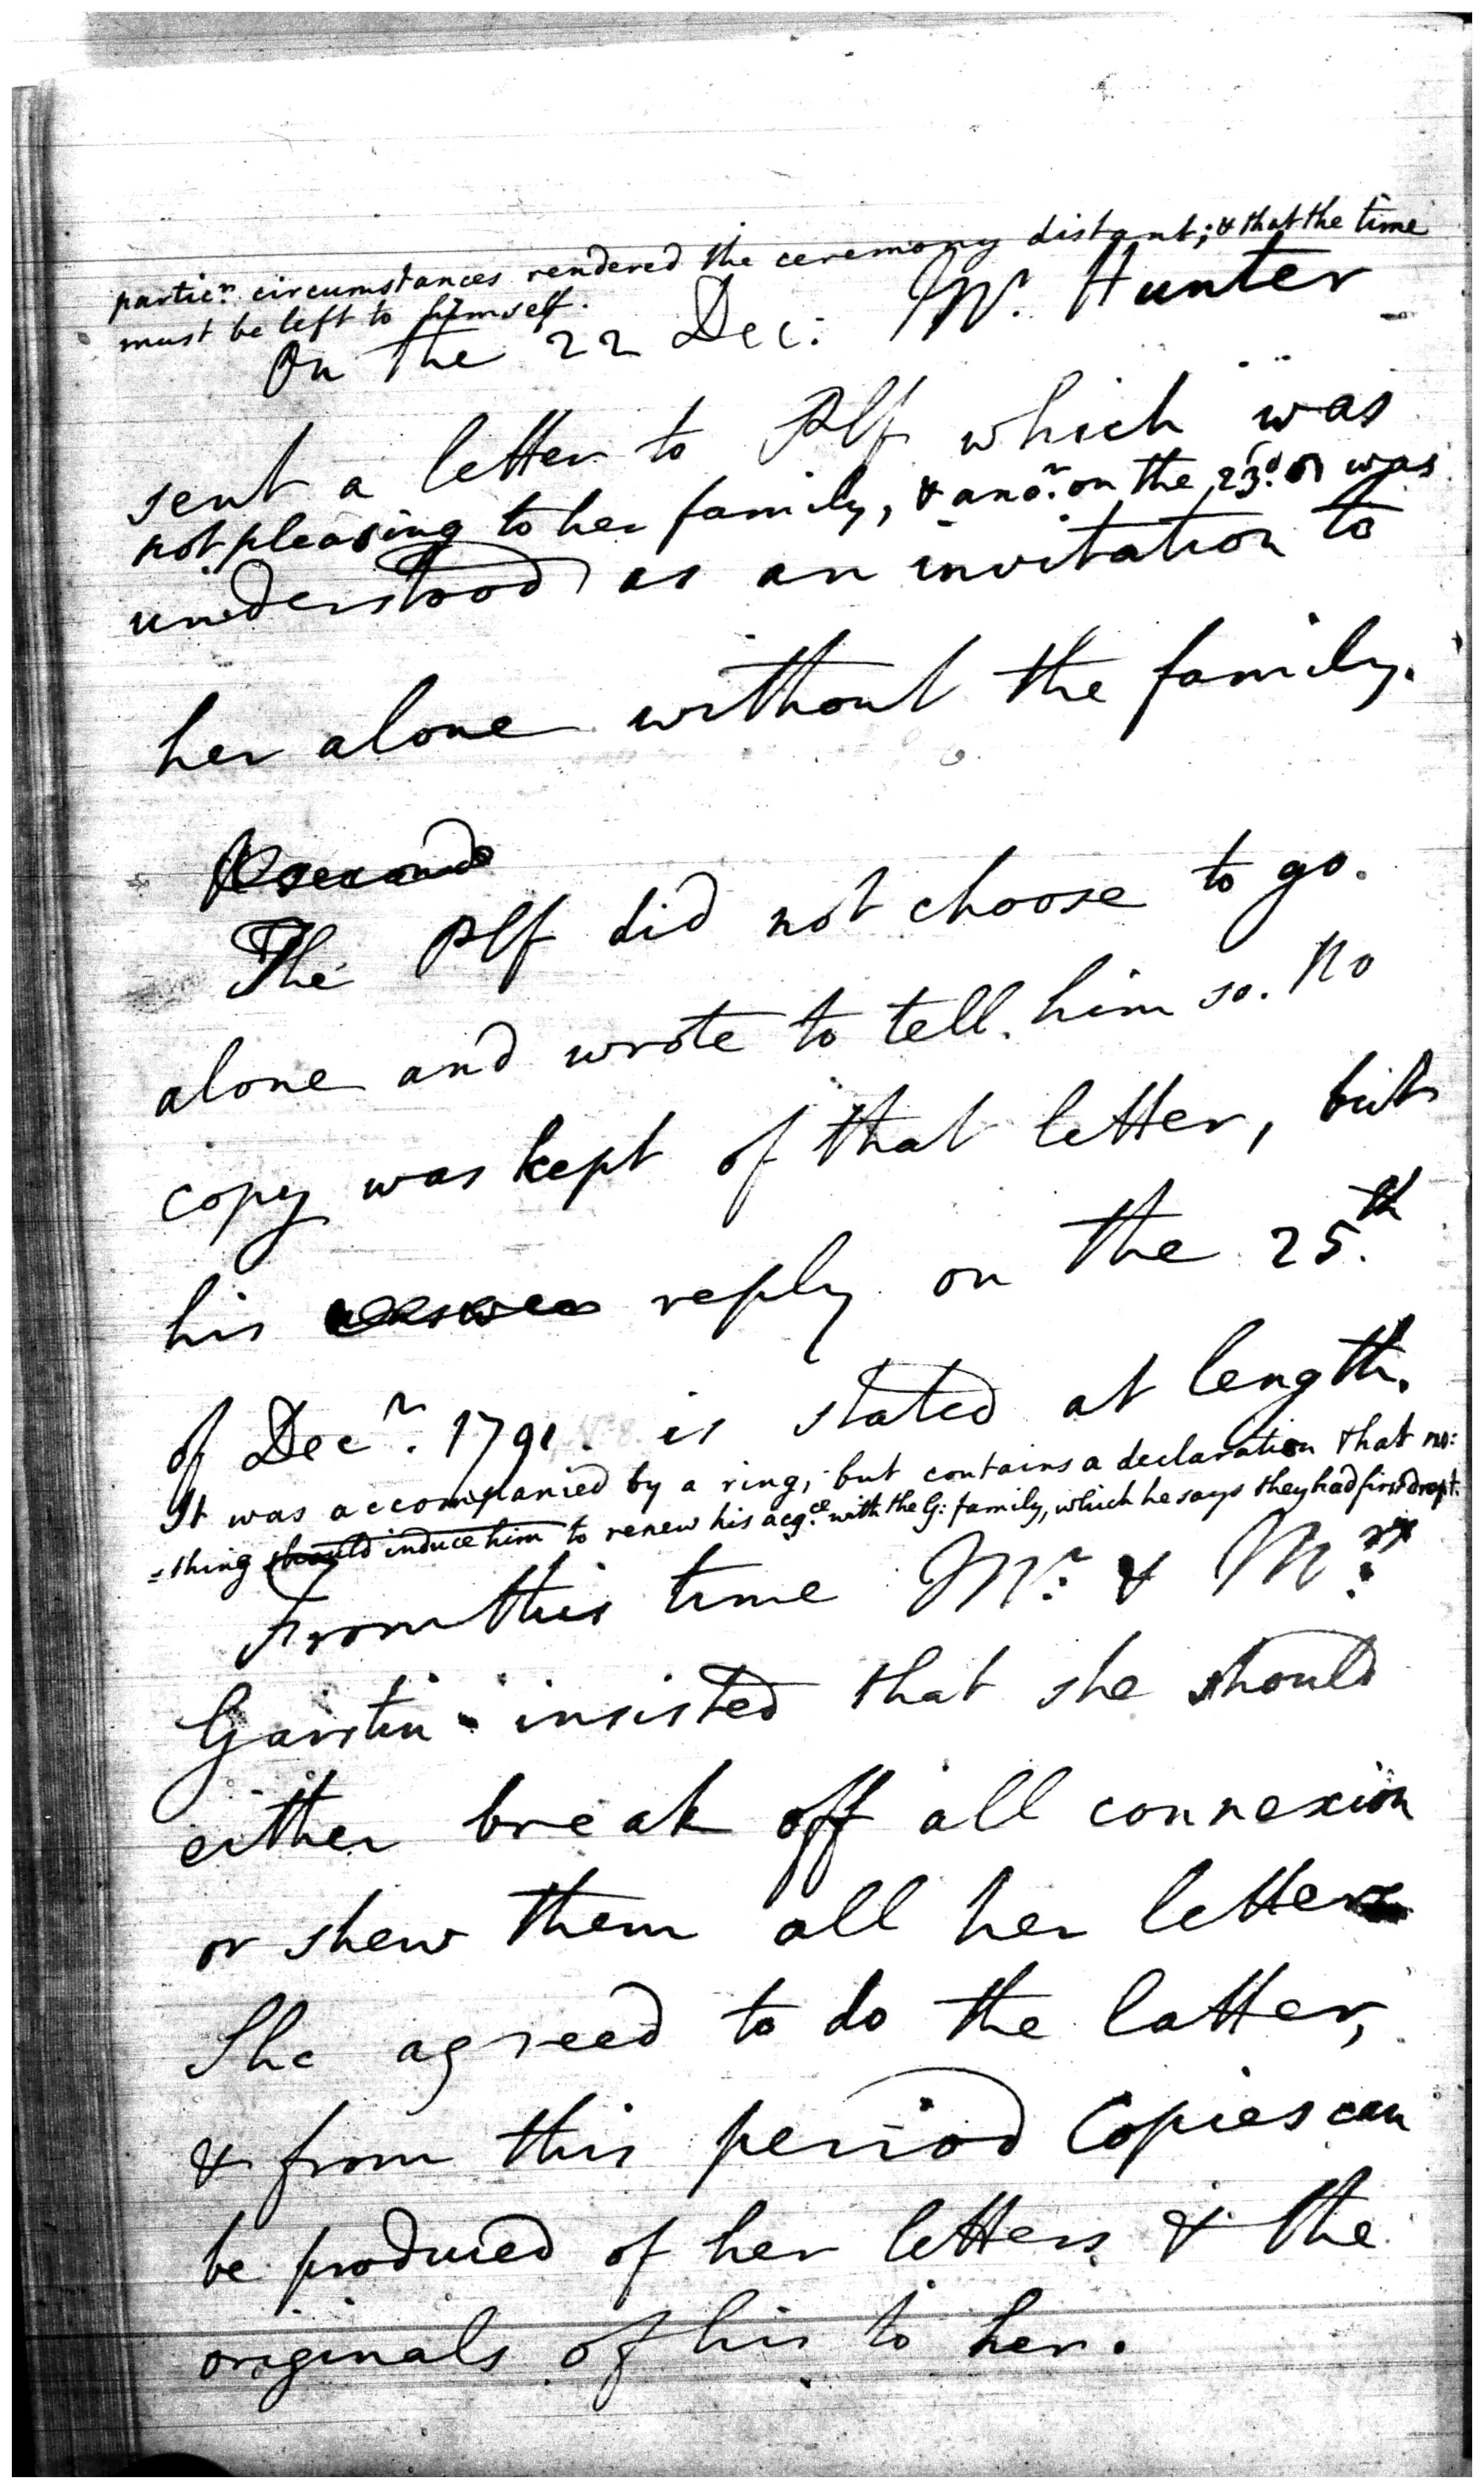 particr. circumstances rendered the ceremony distant; & that the time
must be left to himself.
On the 22 Dec: Mr. Hunter
sent a letter to Plf which was
not pleasing to her family, & anor. on the 23d. was
understood as an invitation to
her alone without the family.
The Plf did not choose to go.
alone and wrote to tell him so. No
copy was kept of that letter, but
his answer reply on the 25.th
of Decr. 1791. is stated at length.
It was accompanied by a ring; but contains a declaration that no:
=thing should induce him to renew his acqce. with the G: family, which he says they had first dropt.
From this time Mr. & Mrs.
Garstin insisted that she should
either break off all connexion
or shew them all her letters
She agreed to do the latter,
& from this period Copies can
be produced of her letters & the
originals of his to her.